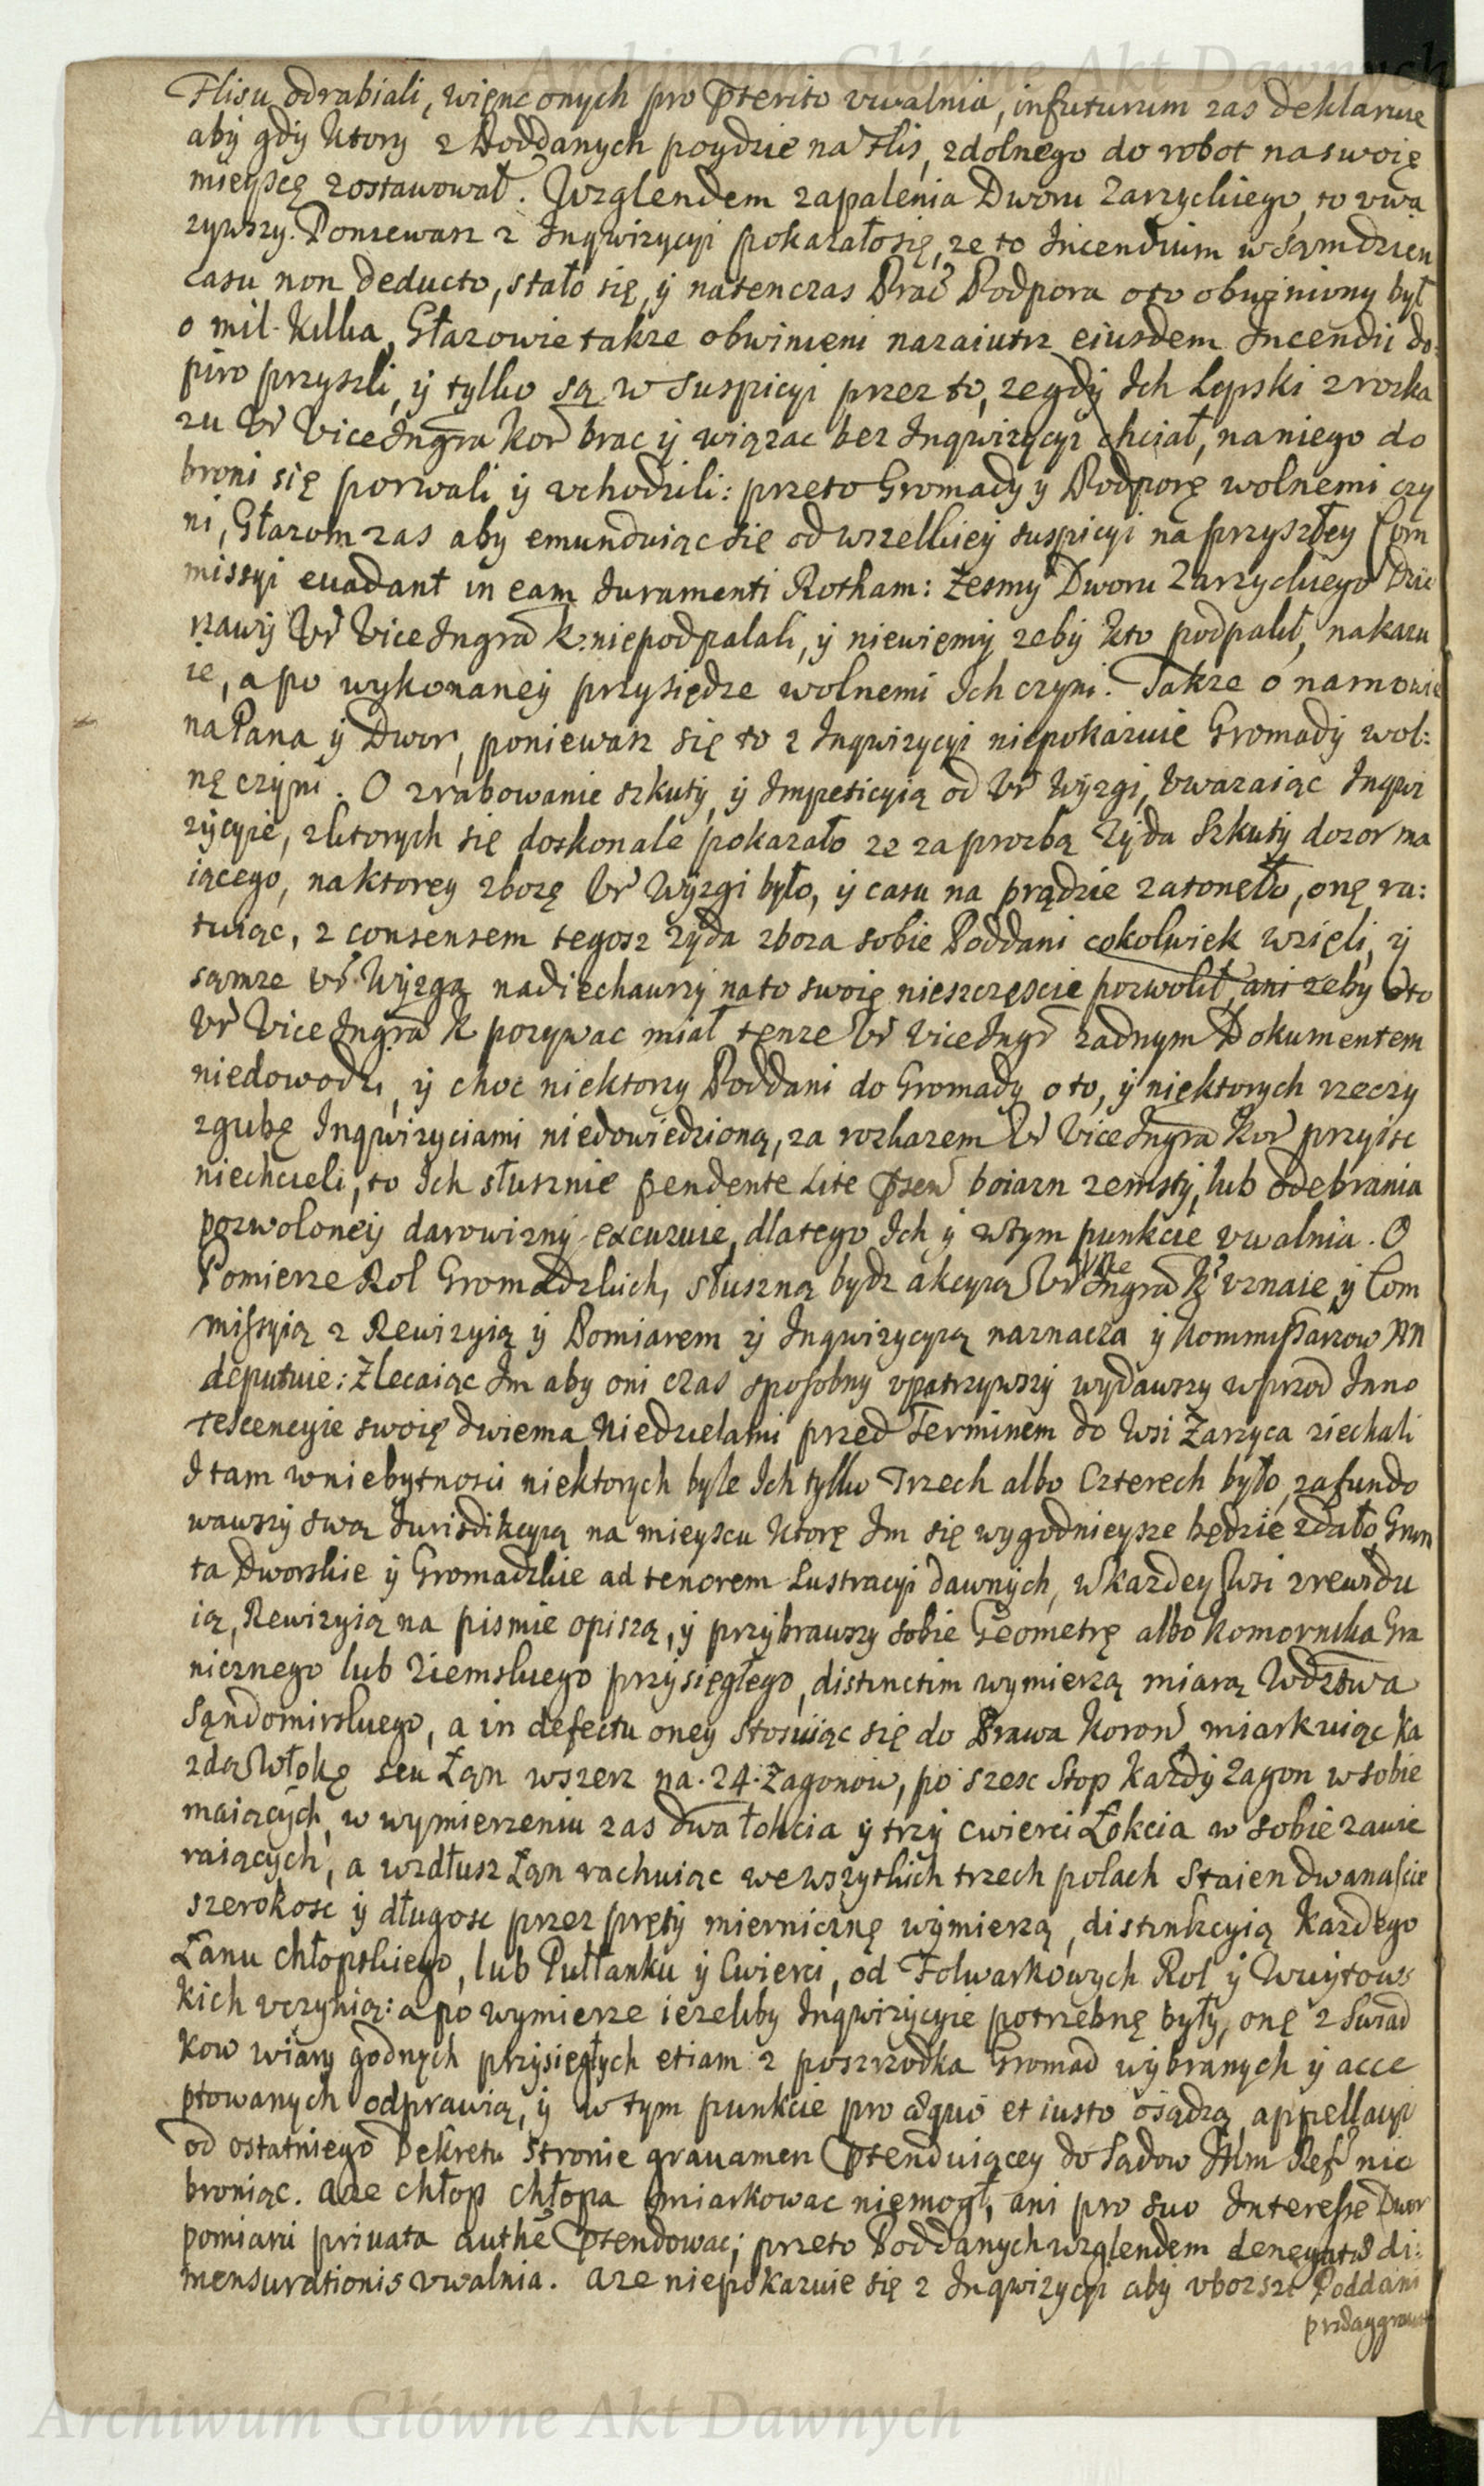 Archiwum Główne Akt Dawnych
Flisu odrabiali, więnc onych pro pterito vwalnia, infuturum zas deklaruie
aby gdy ktory z Poddanych poydzie na Flis, zdolnego do robot naswoię
mieyscę zostawował. Wzglendem zapalenia Dworu Zarzyckiego, to vwa
zywszy. Poniewasz z Inqwizycyi pokazałosię, ze to Incendium w samdzien
casu non deducto, stało się, y natenczas Prac Podpora oto obwiniony był
o mil. kilka, Głazowie takze obwinieni nazaiutrz eiusdem Incendii do:
piro przyszli, y tylko są w suspicyi przez to, zegdy Ich Lepski zrozka
zu Vr ViceIngra Kor brac y wiązac bez Inqwizycyi chciał, naniego do
broni się porwali y vchodzili: przeto Gromady y Podporę wolnemi czy
ni, Głazom zas aby emunduiąc się od wszelkiey suspicyi na przyszłey Com
missyi euadant in eam Iuramenti Rotham: Zesmy Dworu Zarzyckiego Dzie
rzawy Vr ViceIngra K. niepodpalali, y niewięmy zeby kto podpalił, nakazu
ie, a po wykonaney przysiędze wolnemi Ich czyni. Takze o namowie
naPana y Dwor, poniewasz się to z Inqwizycyi niepokazuie Gromady wol:
nę czyni. O zrabowanie szkuty, y Impeticyią od Vr Wyzgi, vwazaiąc Inqwi
zycyie, zktorych się doskonale pokazało ze za prozbą Zyda Szkuty dozor ma
iącego, naktorey zbozę Vr Wyzgi było, y casu na prądzie zatonęło, onę ra:
tuiąc, z consensem tegosz Zyda zboza sobie Poddani cokolwiek wzięli, y
sąmze Vr Wyzga nadiechawszy nato swoię nieszczęscie pozwolił, ani zeby oto
Vr ViceIngra K pozywac miał tenze Vr ViceIngr zadnym Dokumentem
niedowodzi, y choc niektorzy Poddani do Gromady oto, y niektorych rzeczy
zgubę Inqwizyciami niedowiedzioną, za rozkazem Vr ViceIngra Kor przyisc
niechcieli, to Ich słusznie pendente Lite psen boiazn zemsty, lub odebrania
pozwoloney darowizny excuzuie, dlatego Ich y wtym punkcie vwalnia. O
Pomierze Rol Gromadzkich, słuszną bydz akcyią Vr Vice Ingra K vznaie, y Com
missyią z Rewizyią y Pomiarem y Inqwizycyią naznacza y Kommissarzow NN
deputuie: Zlecaiąc Im aby oni czas sposobny vpatrzywszy wydawszy wprzod Inno
tescencyie swoię dwiema Niedzielami przed Terminem do Wsi Zarzyca ziechali
I tam wniebytnosci niektorych byle Ich tylko Trzech albo Czterech było, zafundo
wawszy swą Iurisdikcyią na mieyscu ktorę Im się wygodnieysze będzie zdało, Grun
ta Dworskie y Gromadzkie ad tenorem Lustracyi dawnych, wkazdey wsi zrewidu
ią, Rewizyią na pismie opiszą, y przybrawszy sobie Geometrę albo Komornika Gra
nicznego lub Ziemskiego przysięgłego, distinctim wymierzą miarą Wdztwa
Sąndomirskiego, a in defectu oney stosuiąc się do Prawa Koron, miarkuiąc Ka
zdą Włokę seu Łąn wszerz na. 24. Zagonow, po szesc Stop Kazdy Zagon wsobie
maiących, w wymierzeniu zas dwa łokcia y trzy cwierci Łokcia w sobie zawie
raiących, a wzdłusz Łąn rachuiąc we wszytkich trzech polach Staien dwanascie
szerokosc y długosc przez pręty mierniczne wymierzą, distinkcyią Kazdego
Łanu chłopskiego, lub Pułłanku y Cwierci, od Folwarkowych Rol y Wuytows
kich vczynią: a po wymierze iezeliby Inqwizycyie potrzebnę były, onę z Swiad
kow wiary godnych przysięgłych etiam z poszrzodka Gromad wybranych y acce
ptowanych odprawią, y w tym punkcie pro æquo et iusto osądzą appellacyi
od ostatniego Dekretu stronie grauamen ptenduiącey do Sądow Nam Reff nie
broniąc. aze chłop chłopa umiarkowac niemogł, ani pro suo Interesse Dwor
pomiaru priuata authe ptendowac; przeto Poddanych wzglendem denegatæ di:
mensurationis vwalnia. aze niepokazuie się z Inqwizycyi aby vbozszi Poddani
Archiwum Główne Akt Dawnych